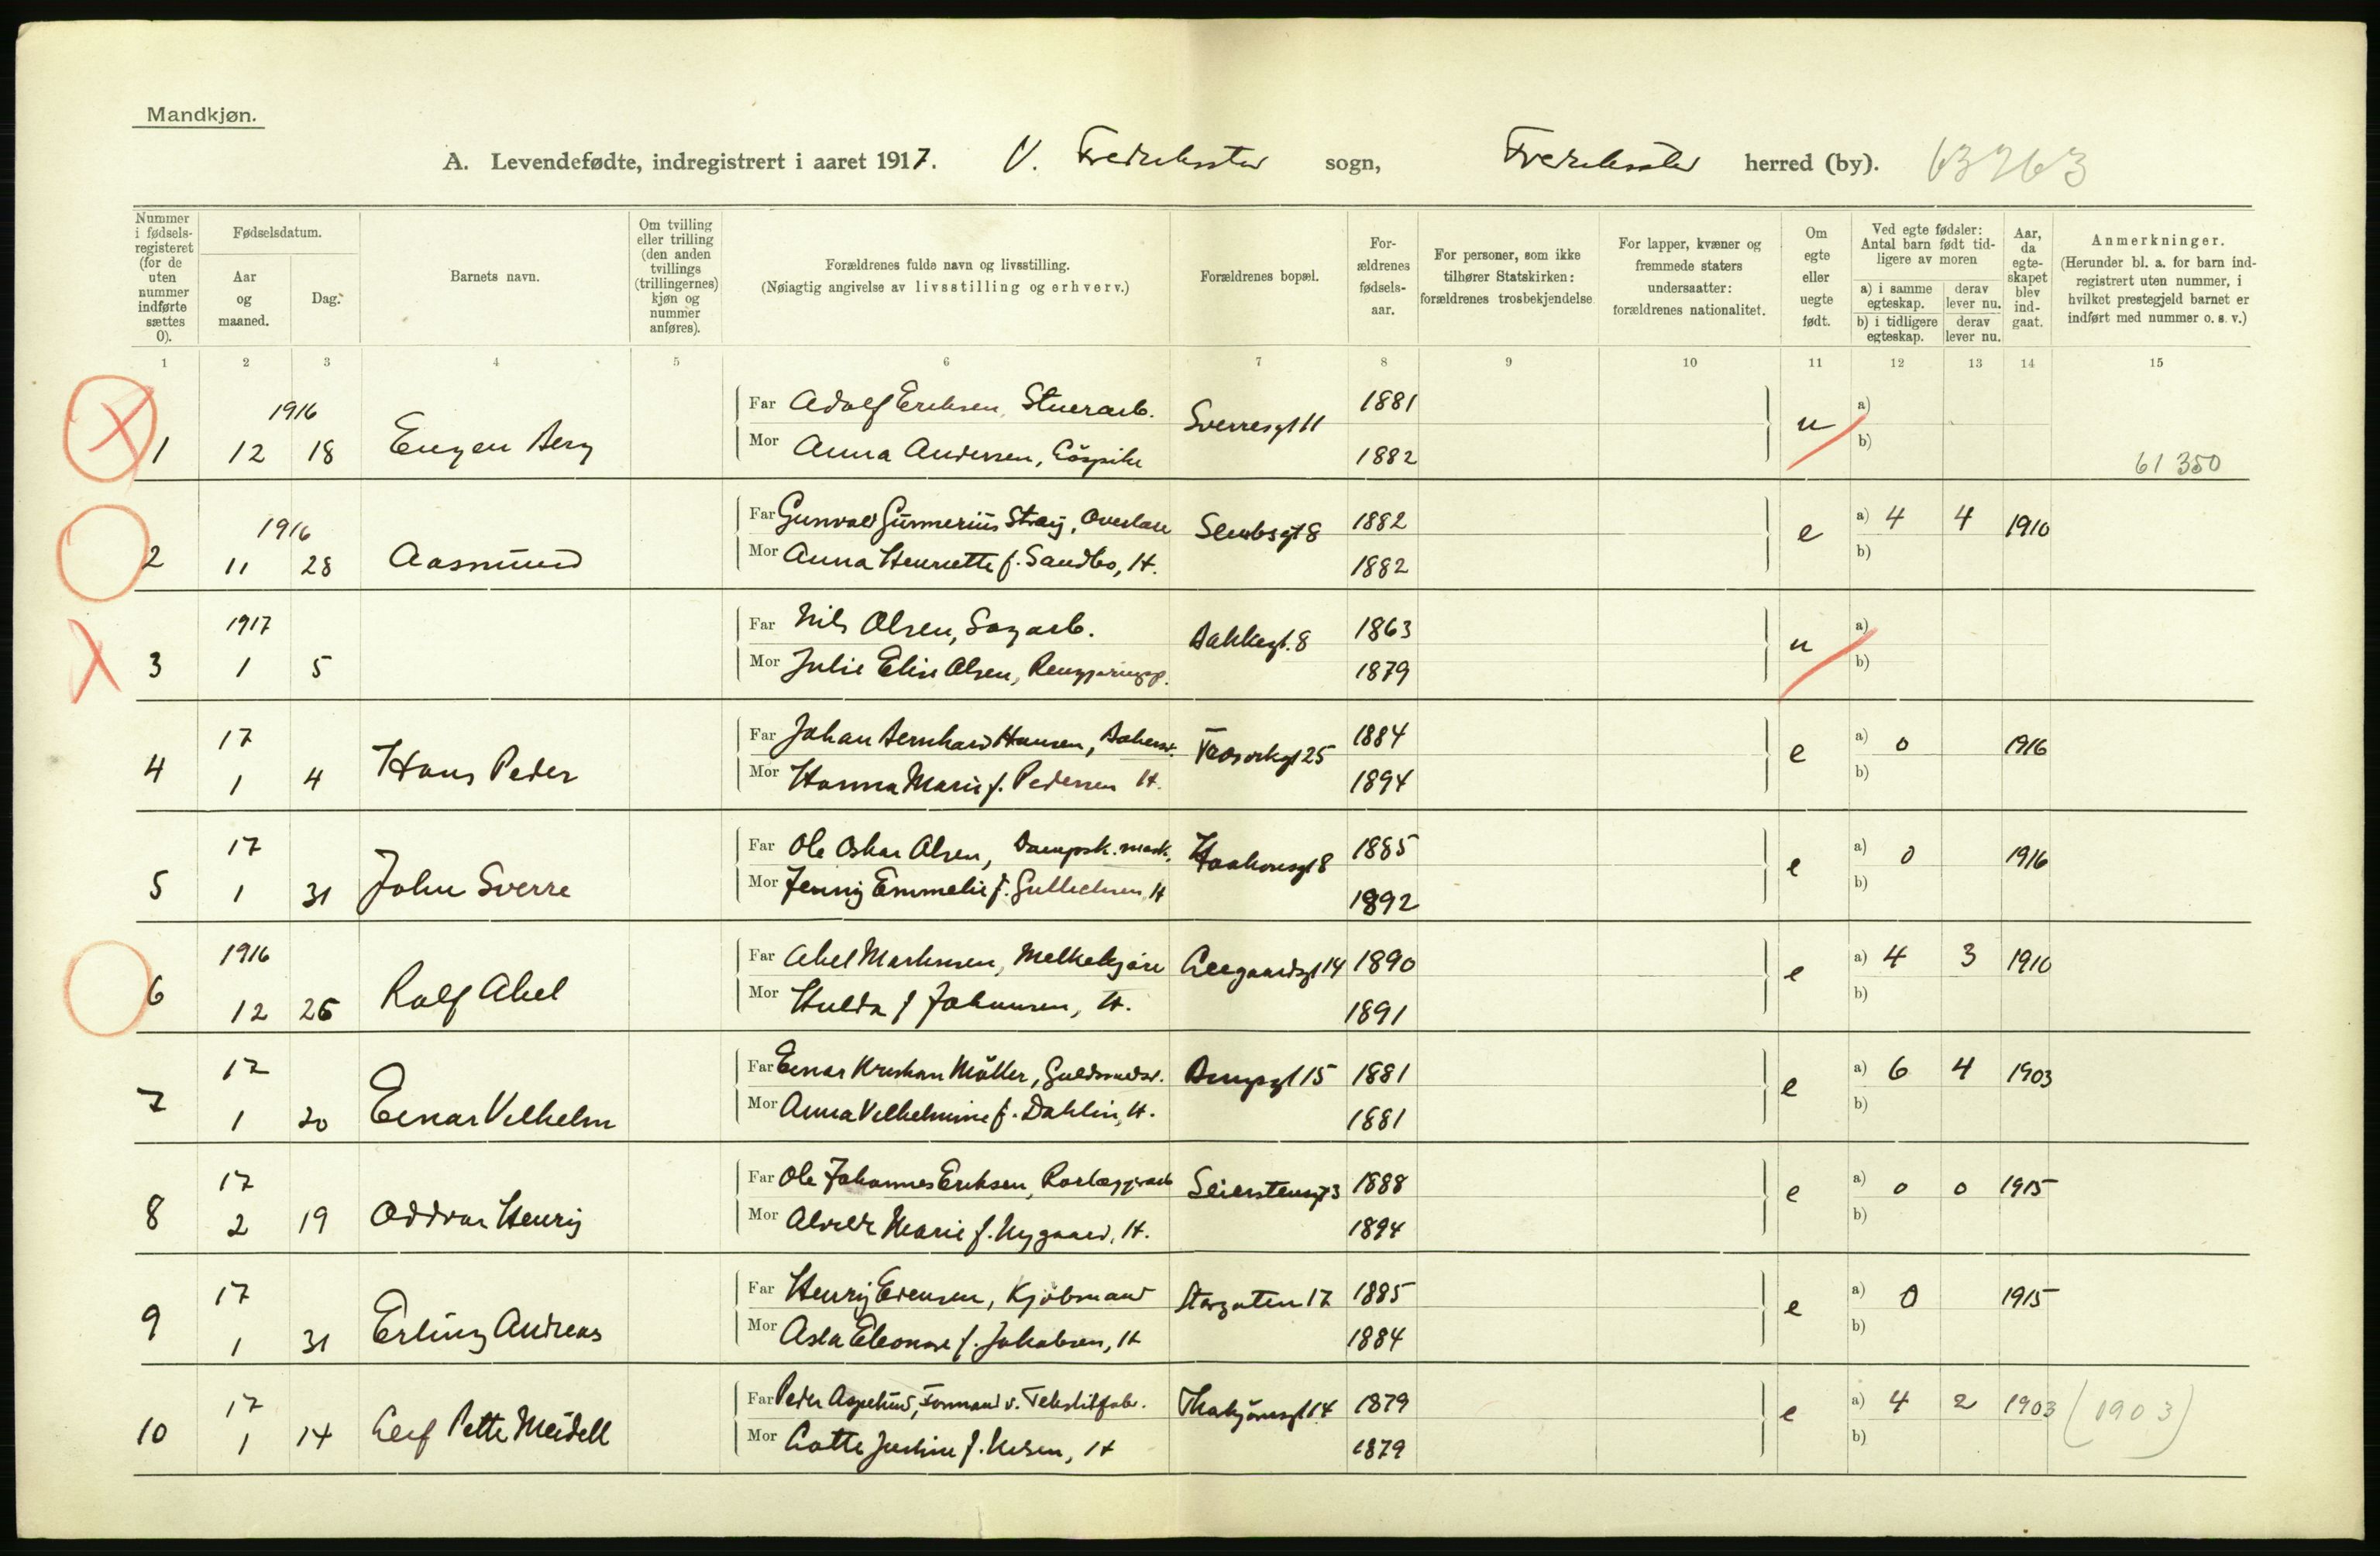 Mandkjøn.
A. Levendefødte, indregistrert i aaret 1917. V. Fredriksstad sogn, Fredriksstad herred (by). 63263
Nummer i fødselsregisteret (for de uten nummer indførte sættes 0).
Fødselsdatum.
Aar og maaned.
Dag.
Barnets navn.
Om tvilling eller trilling (den anden tvillings (trillingernes) kjøn og nummer anføres).
Forældrenes fulde navn og livsstilling.
(Nøiagtig angivelse av livsstilling og erhverv.)
Forældrenes bopæl.
Forældrenes fødselsaar.
For personer, som ikke tilhører Statskirken: forældrenes trosbekjendelse
For lapper, kvæner og fremmede staters undersaatter: forældrenes nationalitet.
Om egte eller uegte født.
Ved egte fødsler: Antal barn født tidligere av moren
a) i samme egteskap. derav lever nu.
b) i tidligere egteskap. derav lever nu.
Aar, da egteskapet blev indgaat.
Anmerkninger.
(Herunder bl. a. for barn indregistrert uten nummer, i hvilket prestegjeld barnet er indført med nummer o. s. v.)
1 2 3 4 5 6 7 8 9 10 11 12 13 14 15
1916 Far Adolf Eriksen, Stuerarb. Sverresgt 11 1881 u a)
1 12 18 Eugen Berg Mor Anna Andersen, 1882 b) 61350
1916 Far Gunvald Gunnerius Stray, 1882 e a) 4 4 1910
2 11 28 Aasmund Mor Anna Henriette f. Sandbo, H. 1882 b)
1917 Far Nils Olsen, Sagarb. Bakkegt. 8 1863 u a)
3 1 5 Mor Julie Elise Olsen, 1879 b)
17 Far Johan Bernhard Hansen, Bakersv. 1884 e a) 0 1916
4 1 4 Hans Peder Mor Hanna Marie f. Pedersen H. 1894 b)
17 Far Ole Oskar Olsen, Dampsk. mask. Haakonsgt 8 1885 e a) 0 1916
5 1 31 John Sverre Mor Jenny Emmelie f. Gulliksen H 1892 b)
1916 Far Abel Markussen, 1890 e a) 4 3 1910
6 12 26 Rolf Abel Mor Hulda f Johannsen, H. 1891 b)
17 Far Einar Kristian Möller, Guldsmedsv. 1881 e a) 6 4 1903
7 1 20 Einar Vilhelm Mor Anna Vilhelmine f. Dahlin, H. 1881 b)
17 Far Ole Johannes Eriksen, Rørlæggerarb Seierstensgt 3 1888 e a) 0 0 1915
8 2 19 Oddvar Henry Mor Alvilde Marie f. Nygaard, H. 1894 b)
17 Far Henry Evensen, Kjøbmand Storgaten 17 1885 e a) 0 1915
9 1 31 Erling Andreas Mor Asta Eleonore f. Jakobsen, H 1884 b)
17 Far Peder Aspelund, Formand v. Tekstilfabr. 1879 e a) 4 2 1903 (1903)
10 1 14 Leif Mor Lotte f. H 1879 b)